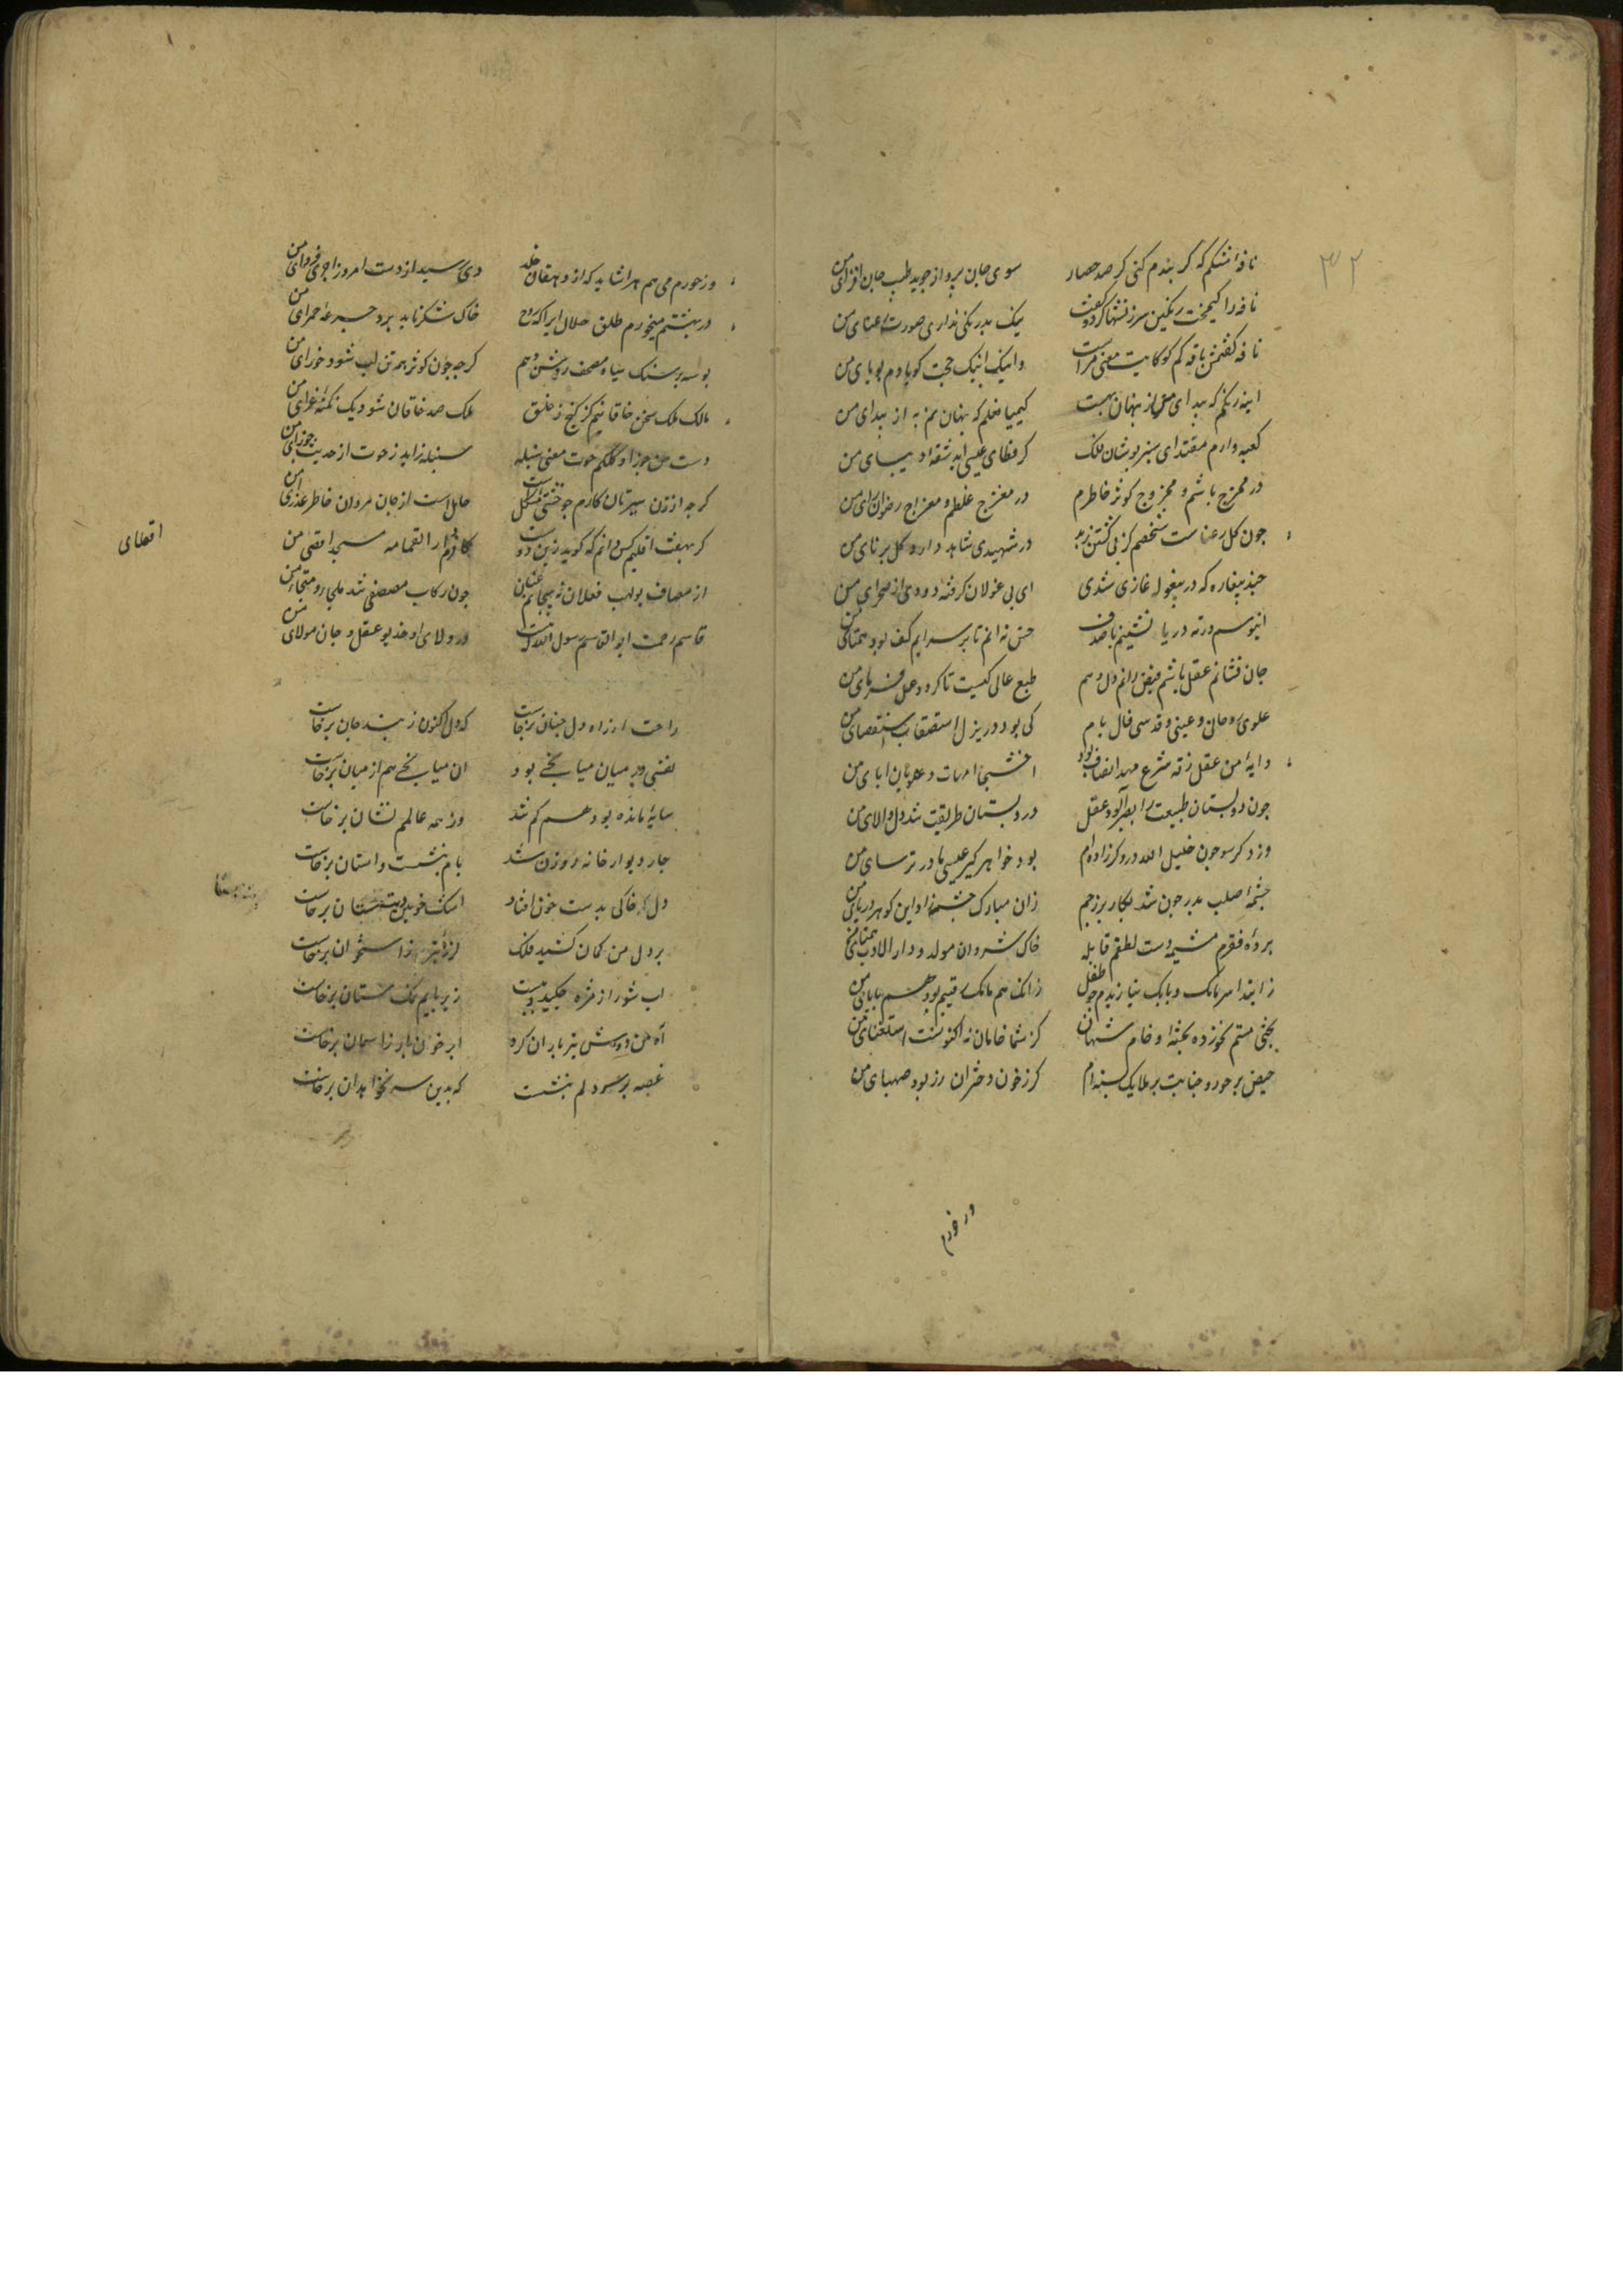 ٣٢
نافۀ مشکم که گر بندم کنی در صد حصار سوی جان پرواز جوید طیب جان افزای من
نافه را کیمخت رنگین سرزنشها کرد و گفت نیک بد رنکی نداری صورت رعنای من
نافه کفتش یافه کم کو کایت معنی مراست واینک اینک حجت کویا دم بویای من
اینه رنکم که پیدای من از پنهان بهست کیمیا فعلم که پنهان هم به از پیدای من
کعبه وارم مقتدای سبز پوشان فلک کز وطای عیسی اید شقۀ دیبای من
در ممزج باشم و ممزوج کوثر خاطرم در معرج غلطم و معراج رضوان رای من
چون کل رعناست شخصم کز پی کشتن زید در شهیدی شاهد دارد کل برنای من
چند بیغاره که در بیغوله غاری شدی ای پی غولان کرفته دوری از صحرای من
انیوسم در ته دریا نشینم با صدف خس نه ام تا بر سر ایم کف بود همتای من
جان فشانم عقل باشم فیض رانم دل دهم طبع عالی کیست تا کردد عمل فرمای من
علوی و روحانی و غیبی و قدسی زاده ام کی بود در بند استقصات استقصای من
دایۀ من عقل و زقه شرع و مهد انصاف بود اخشیجان امهات و علویان ابای من
چون در دبستان طبیعت را بصبر آلود عقل در دبستان طریقت شد دل والای من
وز دکر سو چون خلیل الله دروکر زاده ام بود خواهر کیر عیسی مادر ترسای من
چشمۀ صلب پدر چون شد بکاریز رحم زان مبارک چشمه زاد این کوهر دریای من
پردۀ فقرم مشیمه دست لطفم قابله خاک شروان مولد و دار الادب منشای من
ز ابتدا سر مامک و بابک نیازیدم چو طفل زانک هم مامک رقیبم بود هم بابای من
بختی مستم نخورده پخته و خام شهان کز شما خامان نه اکنونست استغنای من
حیض بر حور و جنابت بر ملایک بسته ام کر ز خون دختران رز بود صهبای من
ور خورم
ور خورم می هم مرا شاید که از دهقان خلد دی رسید از دست امروز اجری فردای من
در بهشتم میخورم طلق حلال ایرا که روح خاک شکر ناید برد جرعۀ حمرای من
بوسه بر سنک سیاه و مصحف روشن دهم کرچه چون کوثر همه تن لب شود اجزای من
مالک ملک سخن خاقانیم کز کنج نطق ملک صد خاقان شود یک نکتۀ غرای من
دست من جوزا و کلکم حوت و معنی سنبله سنبله زاید ز حوت از جنبش جوزای من
کرچه از زن سیرتان کارم چو خنثی مشکلست حامل است از جان مردان خاطر عذرای من
کر بهفت اقلیم کس دانم که کوید زین دو بیت کافرم دار القمامه مسجد اقصی من
اقصای
از مصاف بولهب فعلان نپیچانم عنان چون رکاب مصطفی شد ملجا و منجای من
قاسم رحمت ابو القاسم رسول الله که هست در ولای او خدیو عقل و جان مولای من
راحت از راه دل چنان برخاست که دل اکنون ز بند جان برخاست
نفسی در میان میانجی بود ان میانجی هم از میان برخاست
سایۀ مانده بود هم کم شد وز همه عالمم نشان برخاست
چار دیوار خانه روزن شد بام بنشست و استان برخاست
دل خاکی بدست خون افتاد اشک خونین دیت ستان برخاست
بر دل من کمان کشید فلک لرز تیرم ز استخوان برخاست
اب شور از مژه چکید و ببست زیر پایم نمک ستان برخاست
آه من دوش تیر باران کرد ابر خون بار از اسمان برخاست
غصه بر سر دلم بنشست که بدین سر نخواهد ان برخاست